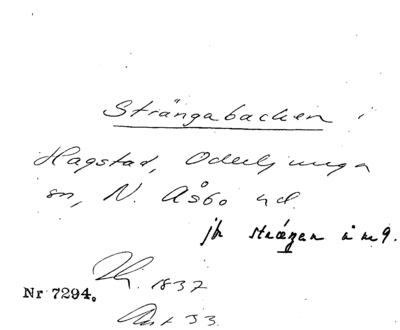 Strängabacken i
Hagstad, Oderljunga
sn, N. Åsbo hd.
jfr strängen å m 9.
1837
Nr 7294.
Art 33